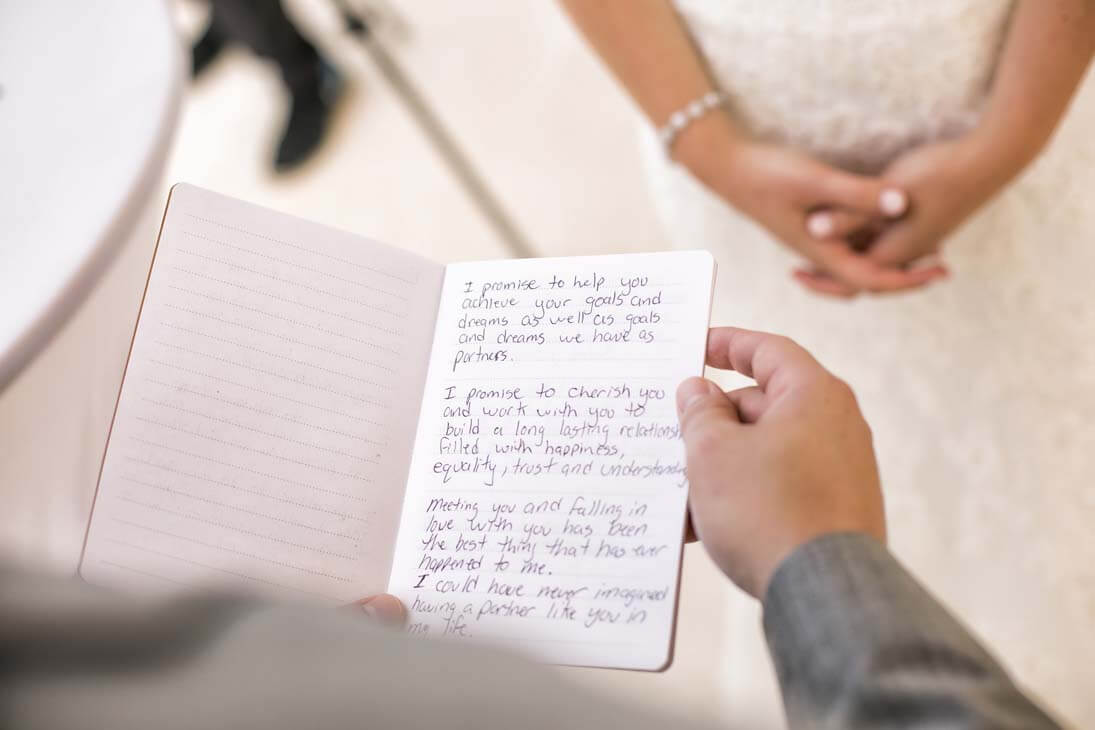 I promise to help you
achieve your goals and
dreams as well as goals
and dreams we have as
partners.
I promise to cherish you
and work with you to
build a long lasting relationsh
filled with happiness,
equality, trust and understanding
Meeting you and falling in
love with you has been
the best thing that has ever
happened to me.
I could have never imagined
having a partner like you in
my life.